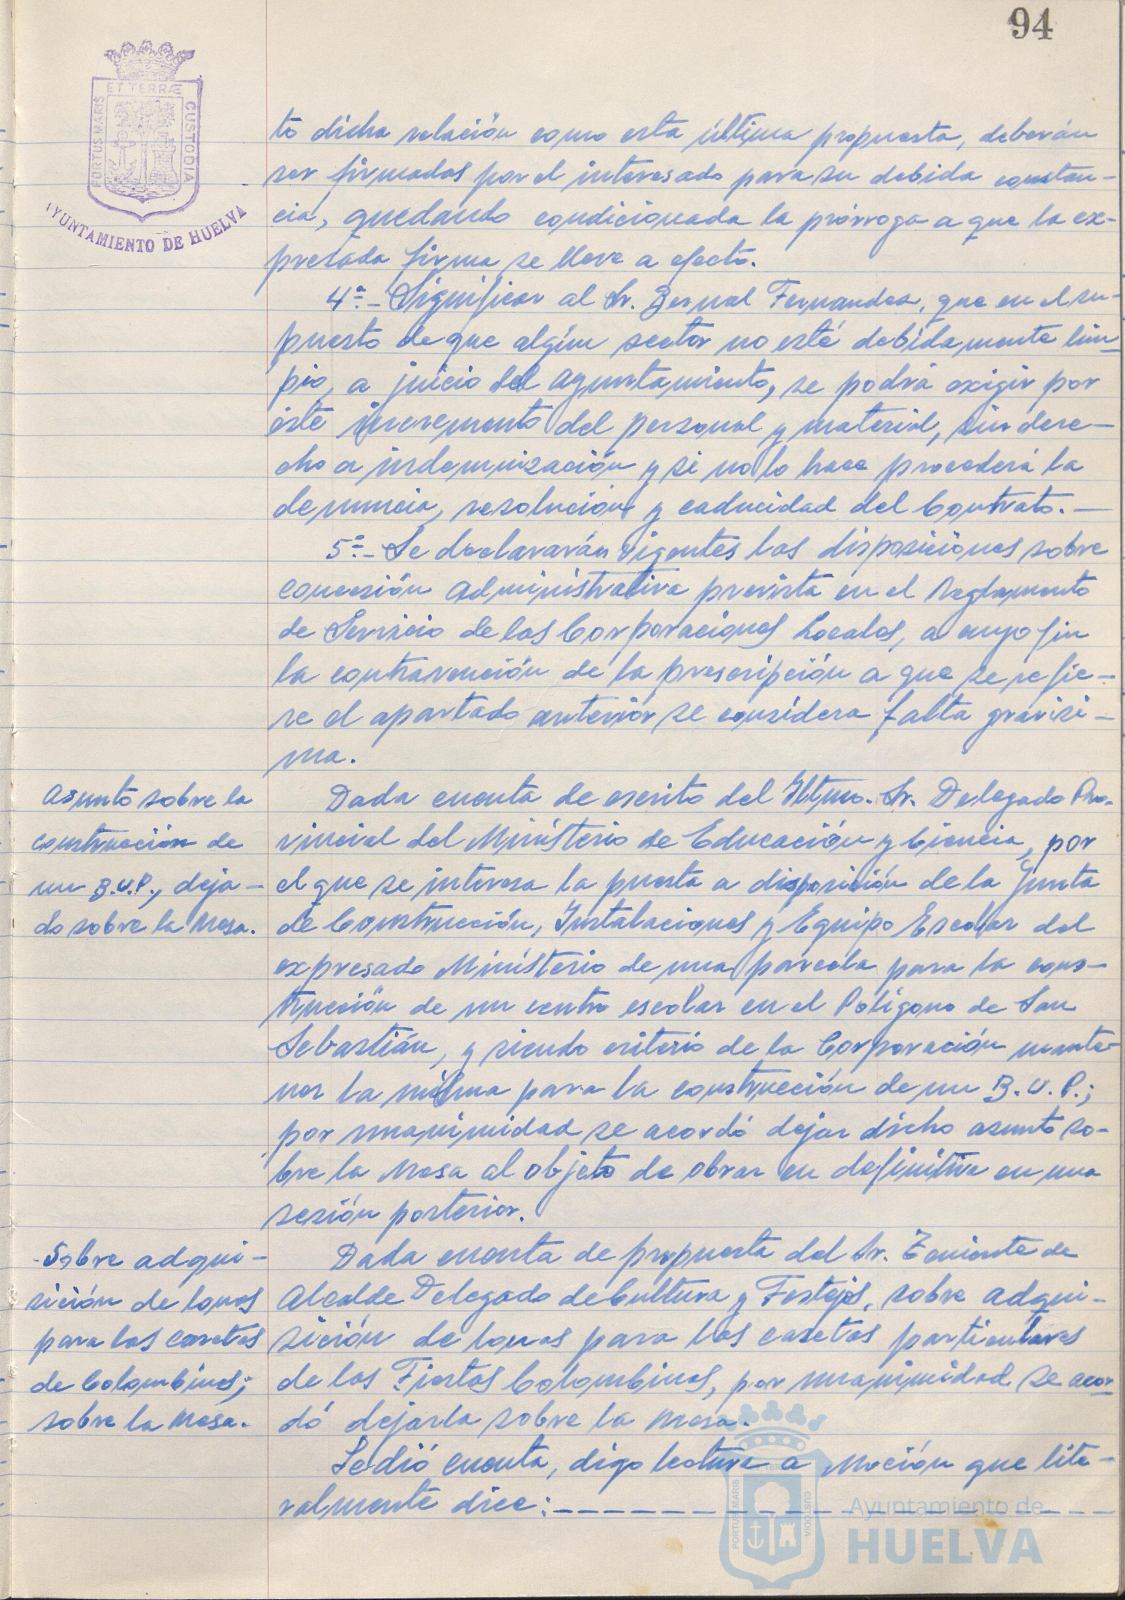 94
PORTUS MARIS
ET TERRÆ
CUSTODIA
AYUNTAMIENTO DE HUELVA
to dicha relación como esta última propuesta, deberán
ser firmados por el interesado para su debida constan-
cia, quedando condicionada la prórroga a que la ex-
presada firma se lleve a efecto.
4ª.- Significar al Sr. Bernal Fernandez, que en el su-
puesto de que algún sector no esté debidamente lim-
pio, a juicio del Ayuntamiento, se podrá exigir por
éste incremento del personal y material, sin dere-
cho a indemnización y si no lo hace procederá la
denuncia, resolución y caducidad del Contrato.-
5ª.- Se declararán vigentes las disposiciones sobre
concesión administrativa prevista en el Reglamento
de Servicio de las Corporaciones Locales, a cuyo fin
la contravención de la prescripción a que se refie-
re el apartado anterior se considera falta gravísi-
ma.
Asunto sobre la
construcción de
un B.U.P., deja-
do sobre la Mesa.
Dada cuenta de escrito del Iltmo. Sr. Delegado Pro-
vincial del Ministerio de Educación y Ciencia, por
el que se interesa la puesta a disposición de la Junta
de Construcción, Instalaciones y Equipo Escolar del
expresado Ministerio de una parcela para la cons-
trucción de un centro escolar en el Polígono de San
Sebastián, y siendo criterio de la Corporación mante-
ner la misma para la construcción de un B.U.P.;
por unanimidad se acordó dejar dicho asunto so-
bre la Mesa al objeto de obrar en definitiva en una
sesión posterior.
Sobre adqui-
sición de lonas
para las casetas
de Colombinas;
sobre la Mesa.
Dada cuenta de propuesta del Sr. Teniente de
Alcalde Delegado de Cultura y Festejos, sobre adqui-
sición de lonas para las casetas particulares
de las Fiestas Colombinas, por unanimidad se acor-
dó dejarla sobre la Mesa.
Se dió cuenta, digo lectura a Moción que lite-
ralmente dice:- - - - - - - - - - - - - - - -
PORTUS MARIS
CUSTODIA
Ayuntamiento de
HUELVA